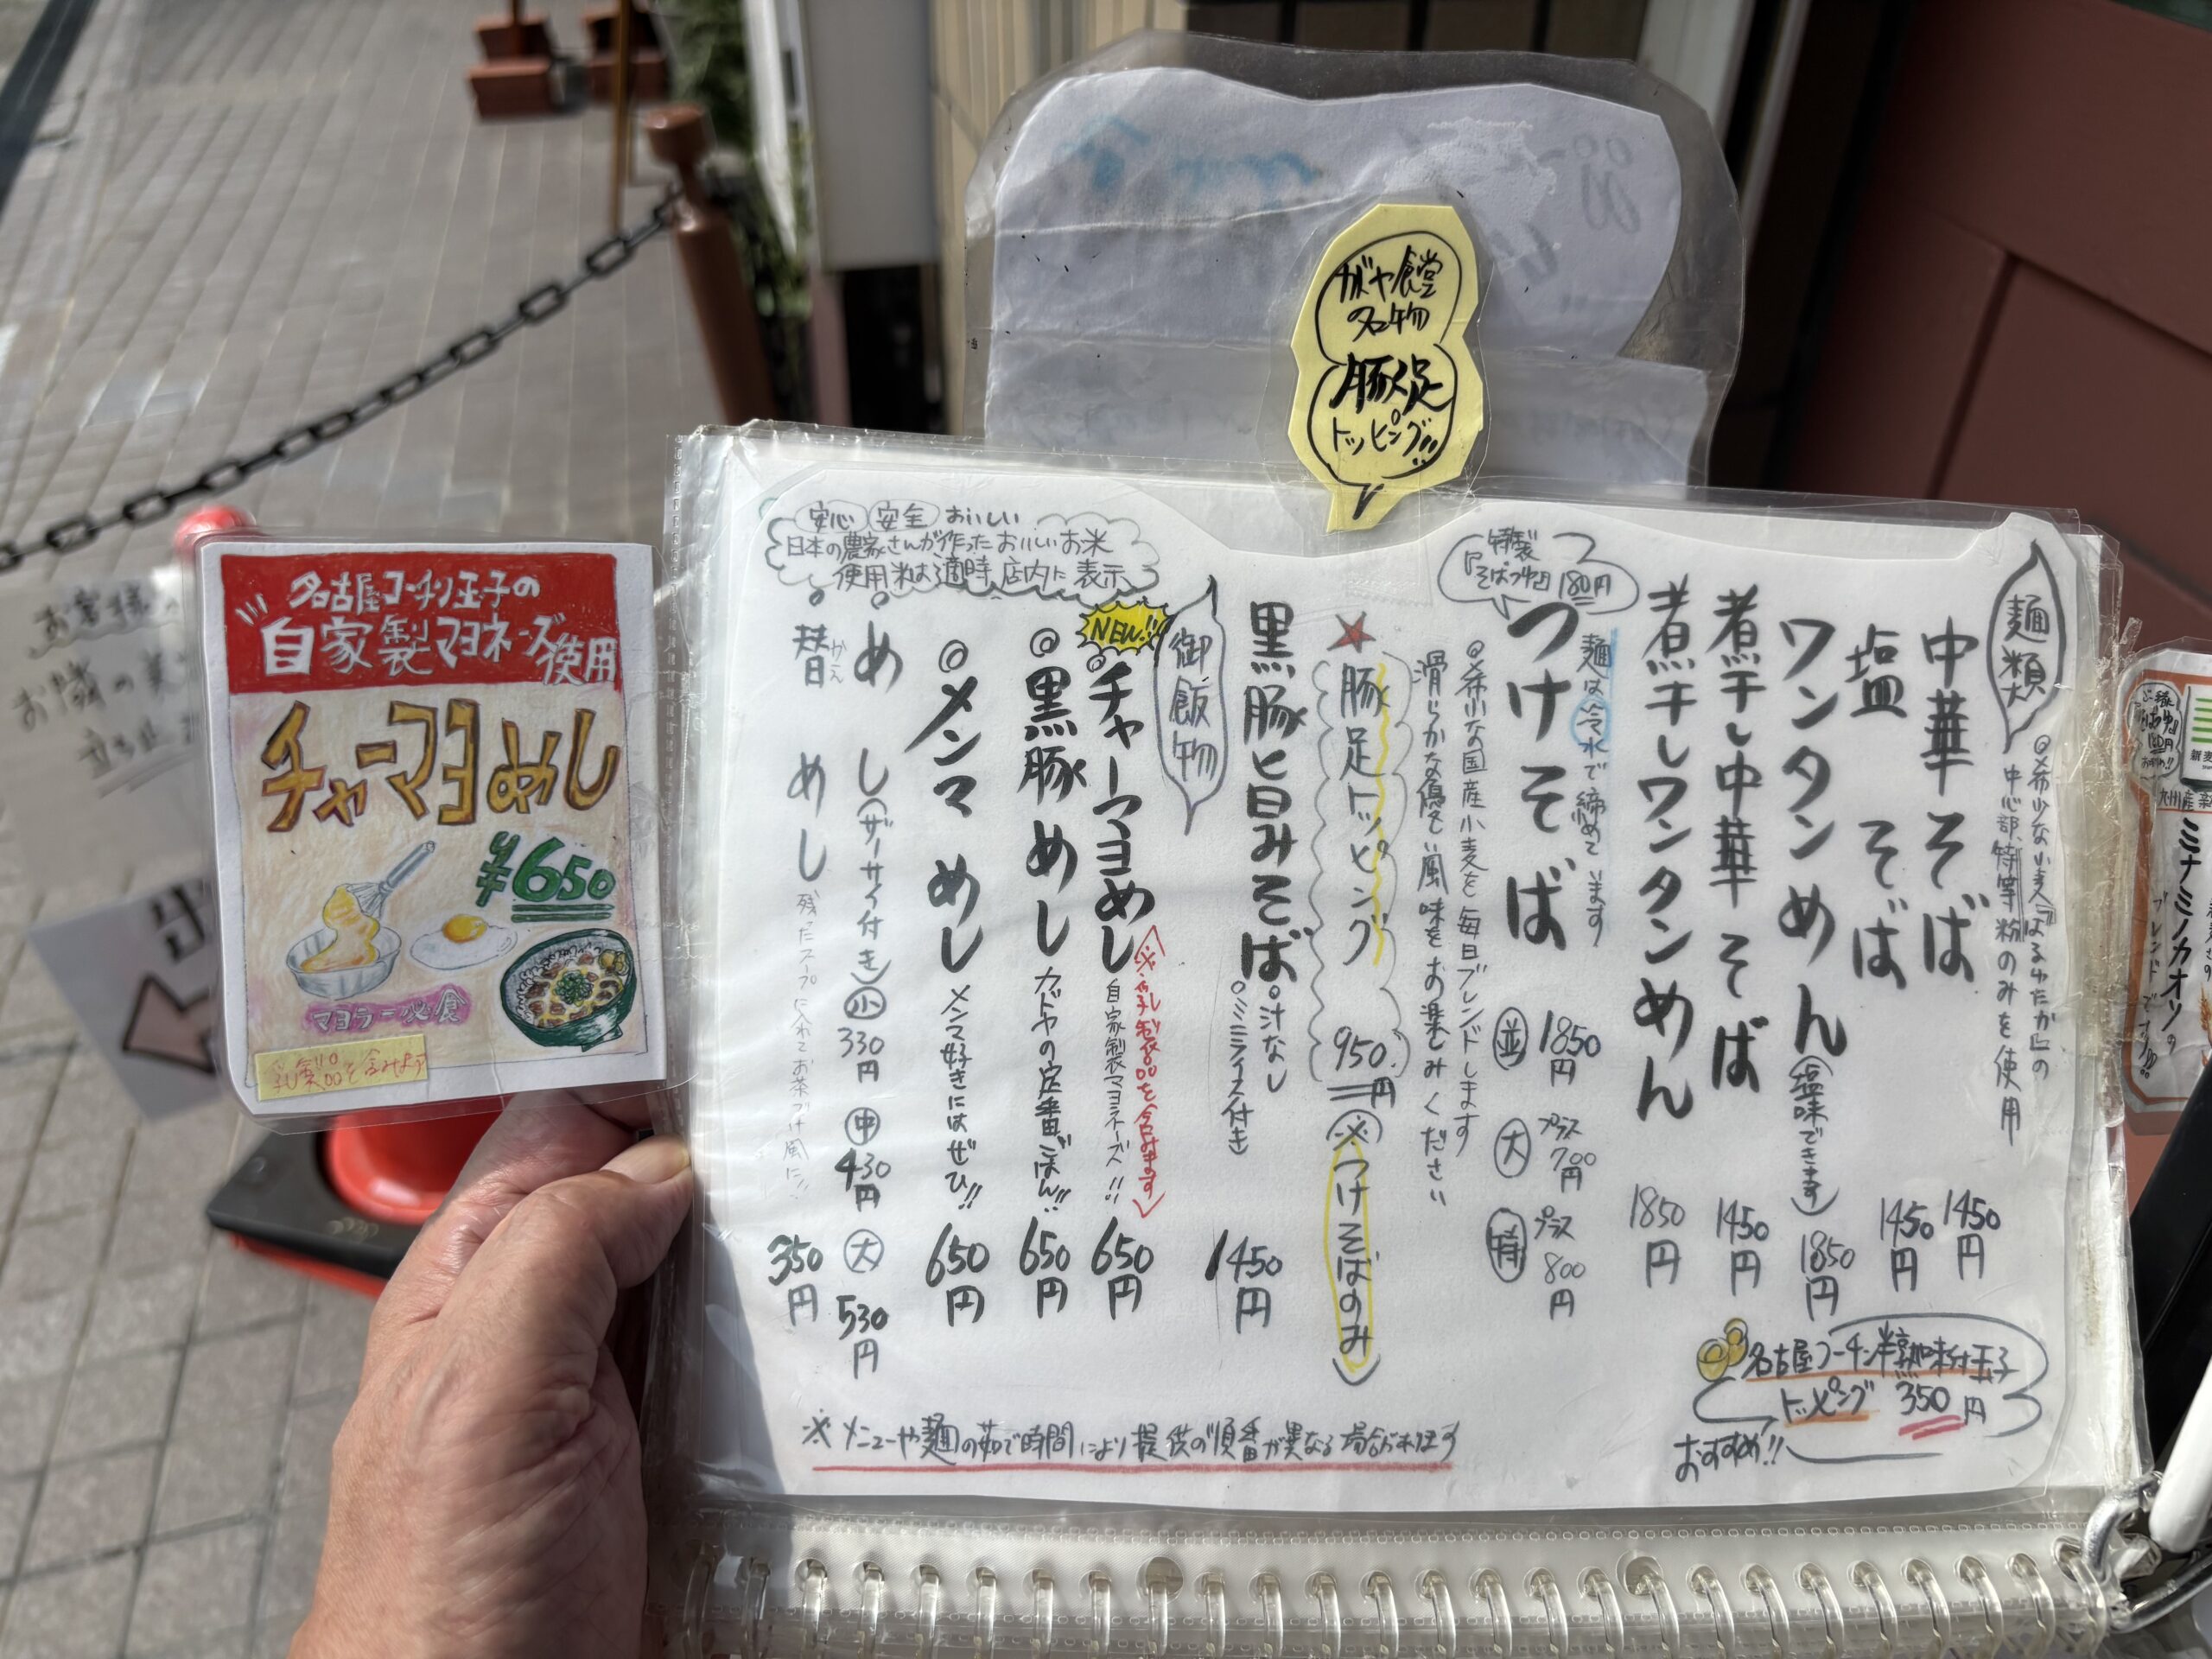 ガヤ食堂
名物
豚足
トッピング!!
麺類
◎希少な小麦『はるゆたか』の
中心部、特等粉のみを使用
中華そば 1450円
塩そば 1450円
ワンタンめん(塩味できます) 1850円
煮干し中華そば 1450円
煮干しワンタンめん 1850円
特製
『そばつゆ』180円
麺は冷水で締めています
つけそば 並 1850円 大 プラス700円 特 プラス800円
◎希少な国産小麦を毎日ブレンドします
滑らかな優しい風味をお楽しみください
★豚足トッピング 950円 (※つけそばのみ)
黒豚旨みそば °汁なし °ミニライス付き 1450円
名古屋コーチン半熟味付玉子
トッピング 350円
おすすめ!!
御飯物
安心 安全 おいしい
日本の農家さんが作ったおいしいお米
使用米は適時店内に表示
NEW!!
◎チャーマヨめし 自家製マヨネーズ!! 650円
(※乳製品を含みます)
◎黒豚めし ガヤの定番ごはん!! 650円
◎メンマめし メンマ好きにはぜひ!! 650円
°めし(ザーサイ付き) 小 330円 中 430円 大 530円
°替めし 残ったスープに入れてお茶づけ風に!! 350円
かえ
※メニューや麺の茹で時間により提供の順番が異なる場合が有ります
名古屋コーチン玉子の
自家製マヨネーズ使用
チャーマヨめし
¥650
マヨラー必食
乳製品を含みます
お客様
ミナミノカオリの
ブレンドです!!